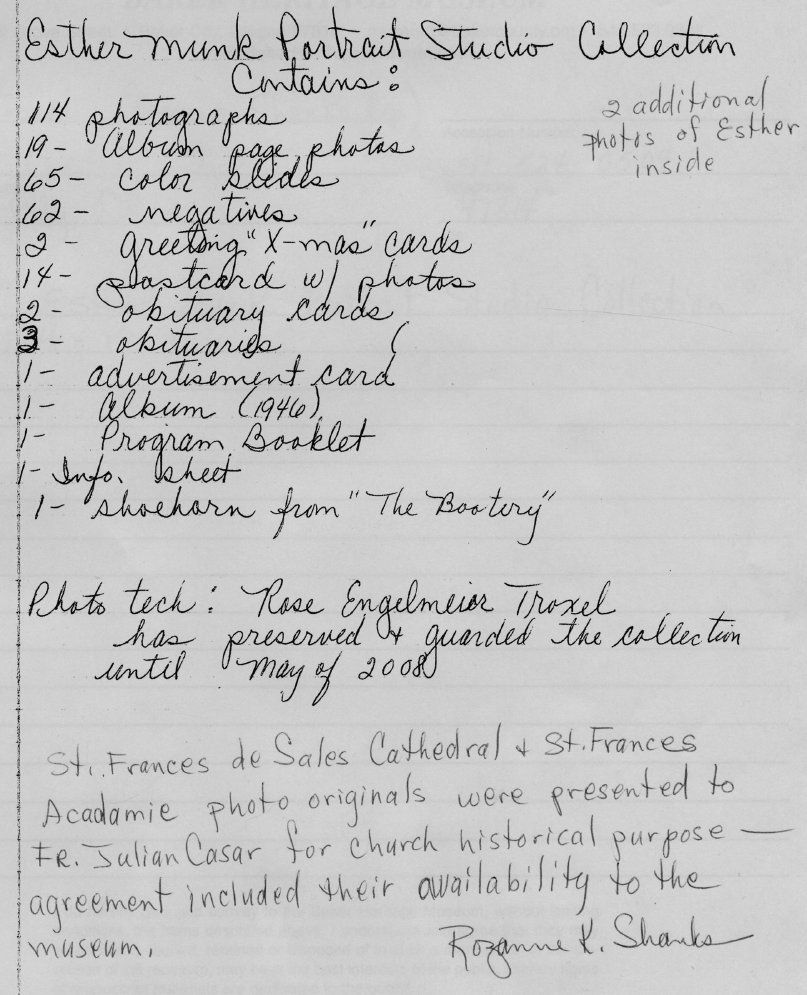 Esther Munk Portrait Studio Collection
Contains:
114 photographs
2 additional
photos of Esther
inside
19- Album page photos
65- color slides
62- negatives
2- greeting "X-mas" cards
14- postcard w/ photos
2- obituary cards
3- obituaries (
1- advertisement card
1- Album (1946)
1- Program Booklet
1- Info. sheet
1- shoehorn from "The Bootery"
Photo tech: Rose Engelmeier Troxel
has preserved & guarded the collection
until May of 2008
St. Frances de Sales Cathedral & St. Frances
Acadamie photo originals were presented to
FR. Julian Casar for church historical purpose —
agreement included their availability to the
museum.
Rozanne K. Shanks